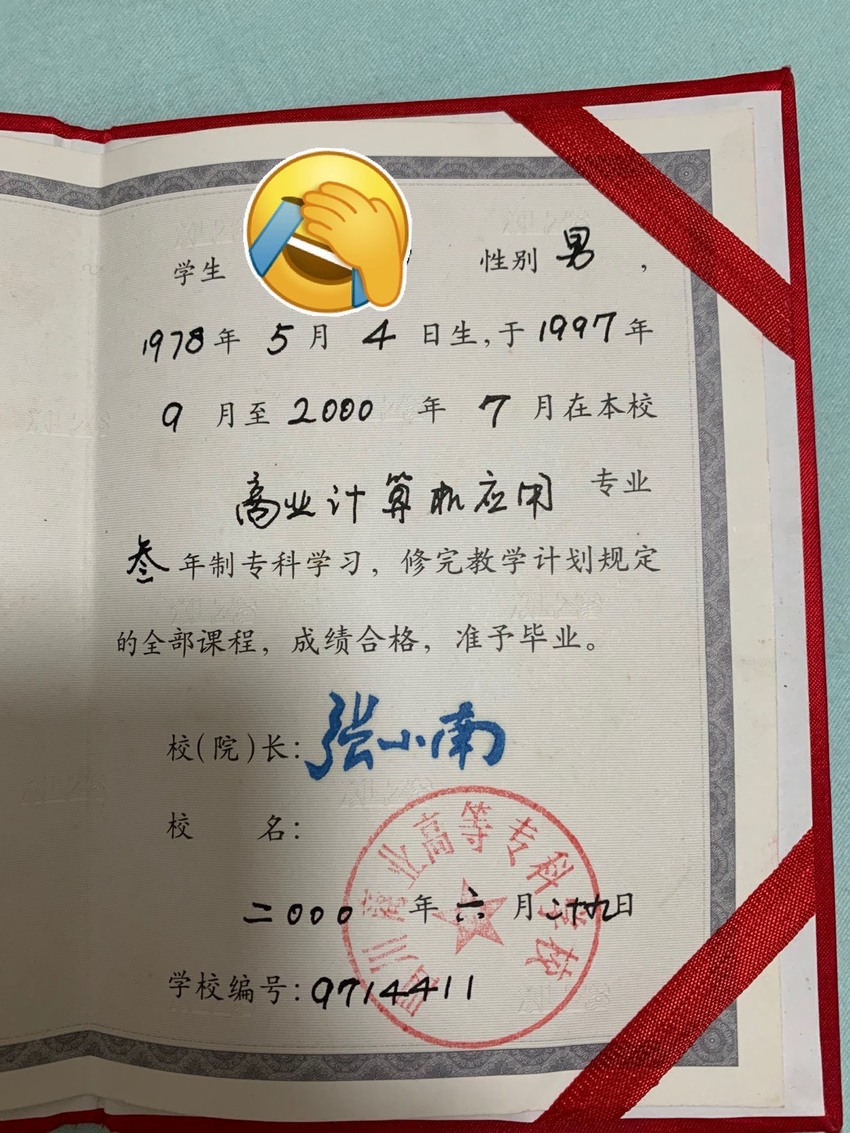 学生 性别 男 ,
1978年 5月 4日生,于1997年
9月至2000年 7月在本校
商业计算机应用 专业
叁年制专科学习,修完教学计划规定
的全部课程,成绩合格,准予毕业。
校(院)长:张小南
校 名:
四川商业高等专科学校
二000年六月二十九日
学校编号:9714411